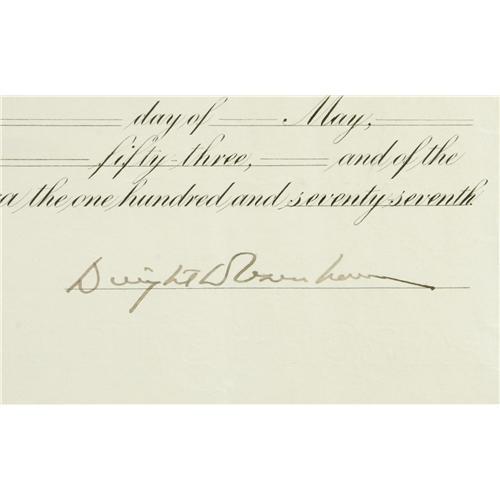 day of May,
fifty-three, and of the
a the one hundred and seventy-seventh
Dwight D Eisenhower